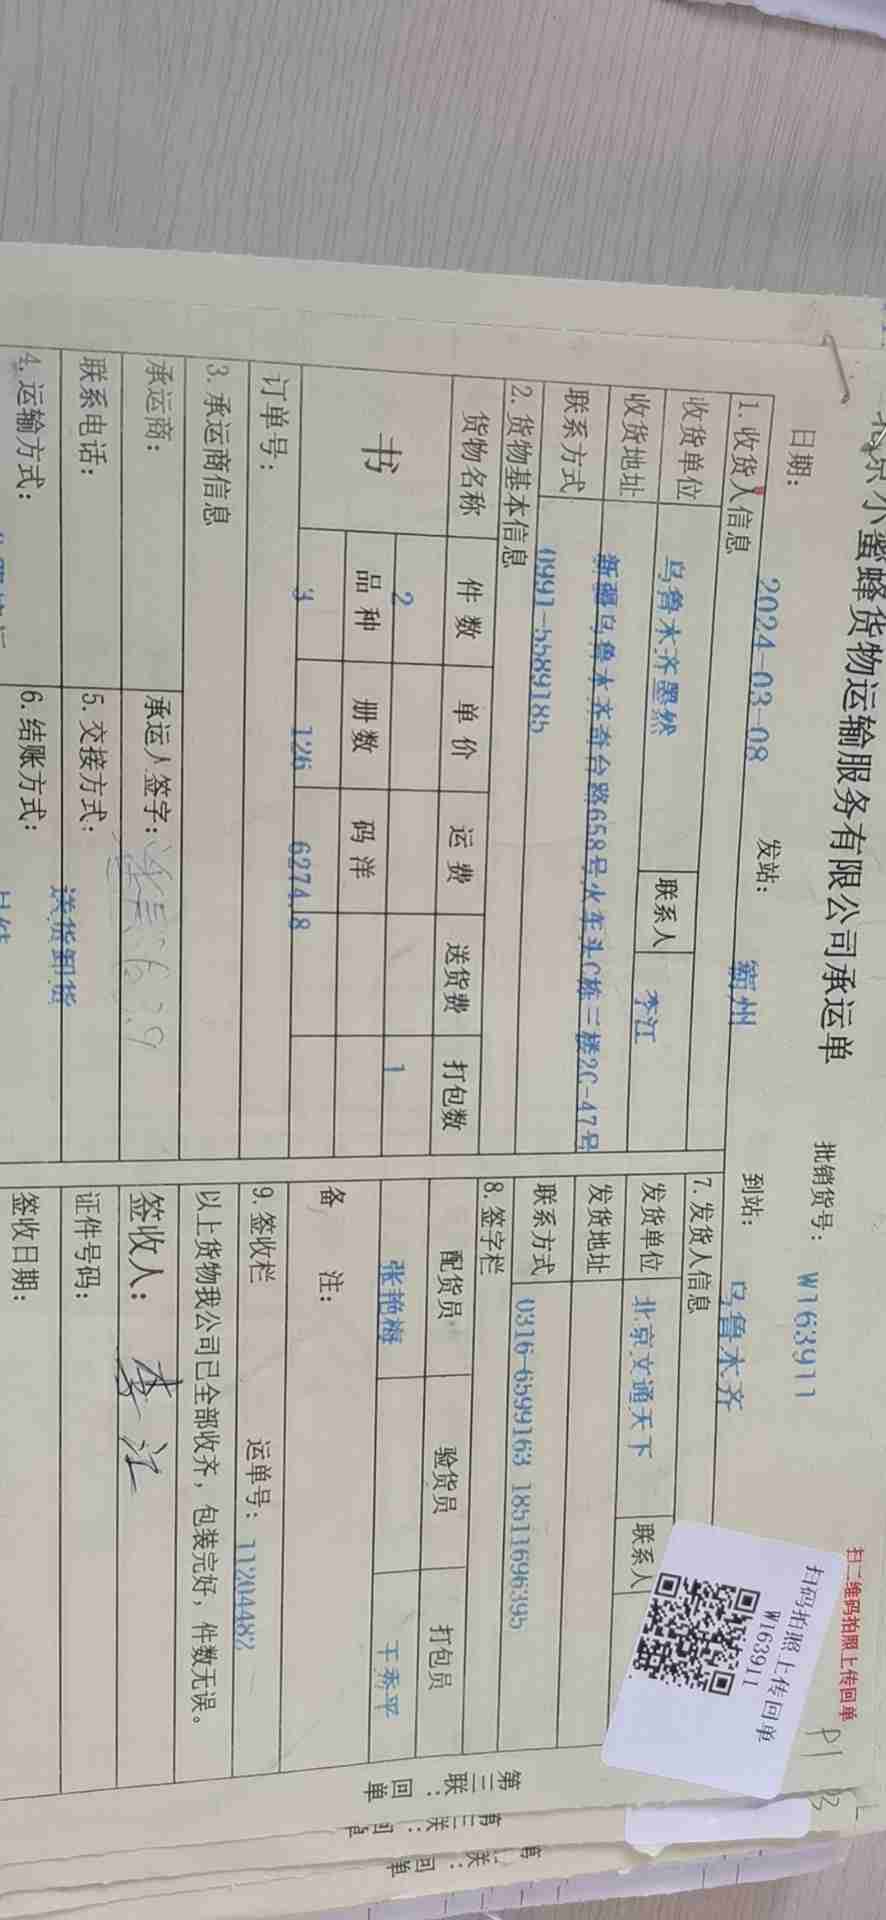 京小蜜蜂货物运输服务有限公司承运单
扫二维码拍照上传回单
批销货号: W163911
扫码拍照上传回单
W163911
日期: 2024-03-08 发站: 到站: 乌鲁木齐
1.收货人信息
收货单位 乌鲁木齐墨然 联系人 李江
收货地址 新疆乌鲁木齐奇台路658号火车头C栋三楼2C-47号
联系方式 0991-5589185
2.货物基本信息
货物名称 件数 单价 运费 送货费 打包数
书 2 1
品种 册数 码洋
3 126 6274.8
订单号:
3.承运商信息
承运商: 承运人签字:
联系电话: 5.交接方式: 送货卸货
4.运输方式: 6.结账方式:
7.发货人信息
发货单位 北京文通天下 联系人
发货地址
联系方式 0316-6599163 18511696395
8.签字栏
配货员 验货员 打包员
张艳梅 王秀平
备注:
9.签收栏 运单号: 11204482
以上货物我公司已全部收齐，包装完好，件数无误。
签收人: 李江
证件号码:
签收日期:
第三联:回单